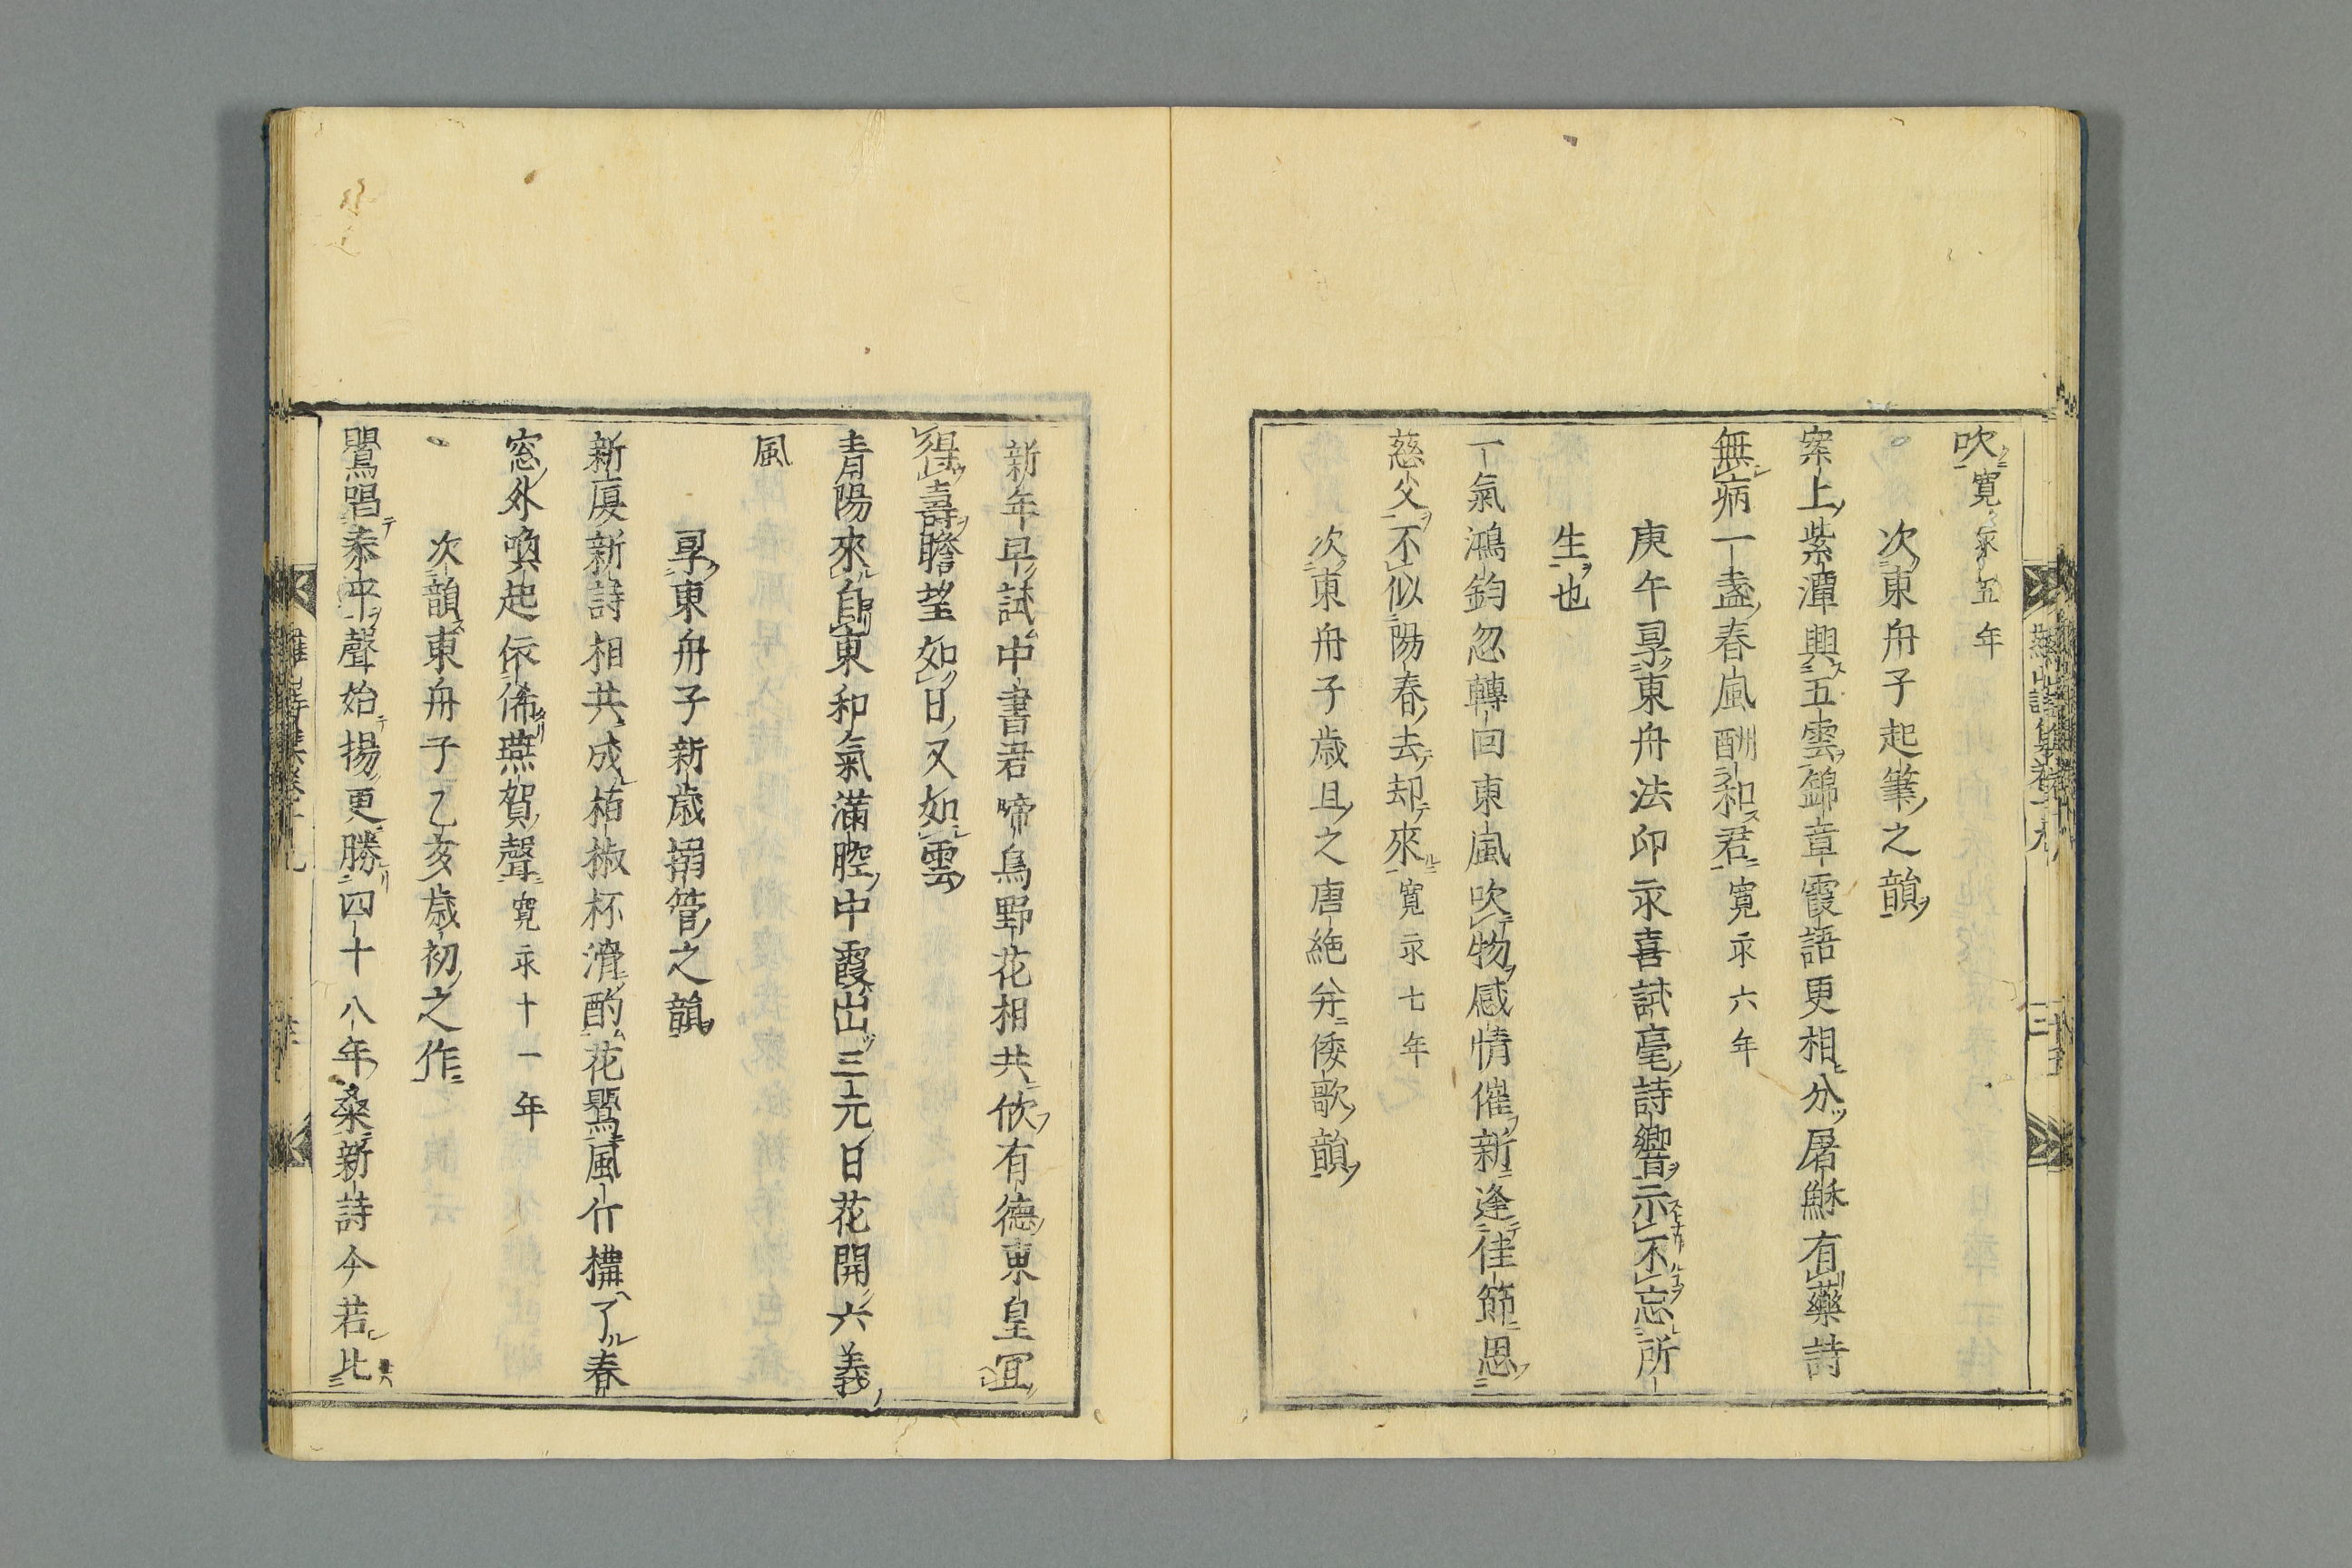 吹寛永五年
次東舟子起筆之韻
案上紫潭興五雲錦章霞語更相分屠穌有藥詩
無病一盞春風酬和君寛永六年
庚午㝵東舟法印永喜試毫詩嚮示不忘所
生也
一氣鴻鈞忽轉回東風吹物感情催新逢佳節思
慈父不似陽春去却來寛永七年
次東舟子歳旦之唐絶并倭歌韻
新年早試中書君啼鳥野花相共欣有德東皇冝
得壽瞻望如日又如雲
青陽來自東和氣滿腔中霞出三元日花開六義
風
㝵東舟子新歳搦管之韻
新厦新詩相共成栢椒杯滑酌花鸎風什搆了春
窓外喚起依俙燕賀聲寛永十一年
次韻東舟子乙亥歳初之作
鸎唱泰平聲始揚更勝四十八年桑新詩今若比